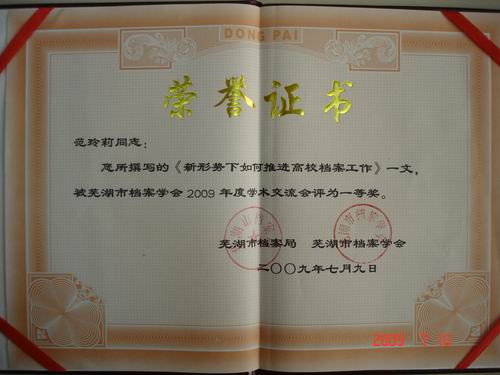 DONG PAI
荣誉证书
范玲莉同志：
您所撰写的《新形势下如何推进高校档案工作》一文，
被芜湖市档案学会2009年度学术交流会评为一等奖。
芜湖市档案局 芜湖市档案学会
二〇〇九年七月九日
芜湖市档案
芜湖市档案学会
2009 7 10